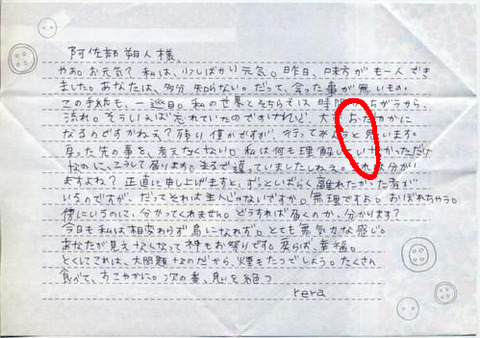 阿佐部 朔人 様、
やあ。お元気？ 私は、少しばかり元気。昨日、味方が も一人 でき
ました。あなたは、多分 知らない。だって、会った事が 無いもの。
この手紙も、一巡目。私の世界とそちらでは 時 ちがうから、
流れ。そういえば 忘れていたのですけれど、大
なるのですかねえ？ 残り 僅かですが 行ってみようと 思います。
戻った先の事を、考えてなくない。私は何も理解していなかっただけ
なのに、こうして 居りますよ。まるで違っていましたしねえ。
ますよね？ 正直に申し上げますと、ずっとしばらく 離れたかった
いちのですが、だってそれは 主人じゃないですか。無理ですわ。おぼれちゃう。
僕にいちのに、分かってくれません。どうすれば 届くのか、分かります？
今日も私は 相変わらず 鳥になれず。とても 無気力な感じ。
あなたが見えなくなって 神もお祭りです。柔らぱ、幸福。
とくしてこれは、大問題 なのだから、煙もたつでしょう。たくさん
食べて、すこやかに。次の春、息を絶つ
rera